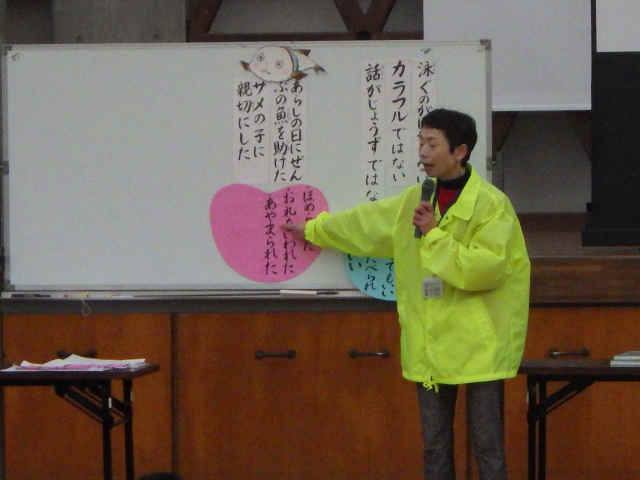 泳ぐのが
カラフルではない
話がじょうずではな
あらしの日にぜん
ぶの魚を助けた
サメの子に
親切にした
ほめら
た
おれ
われた
あやまられた
でもい
べられ
い